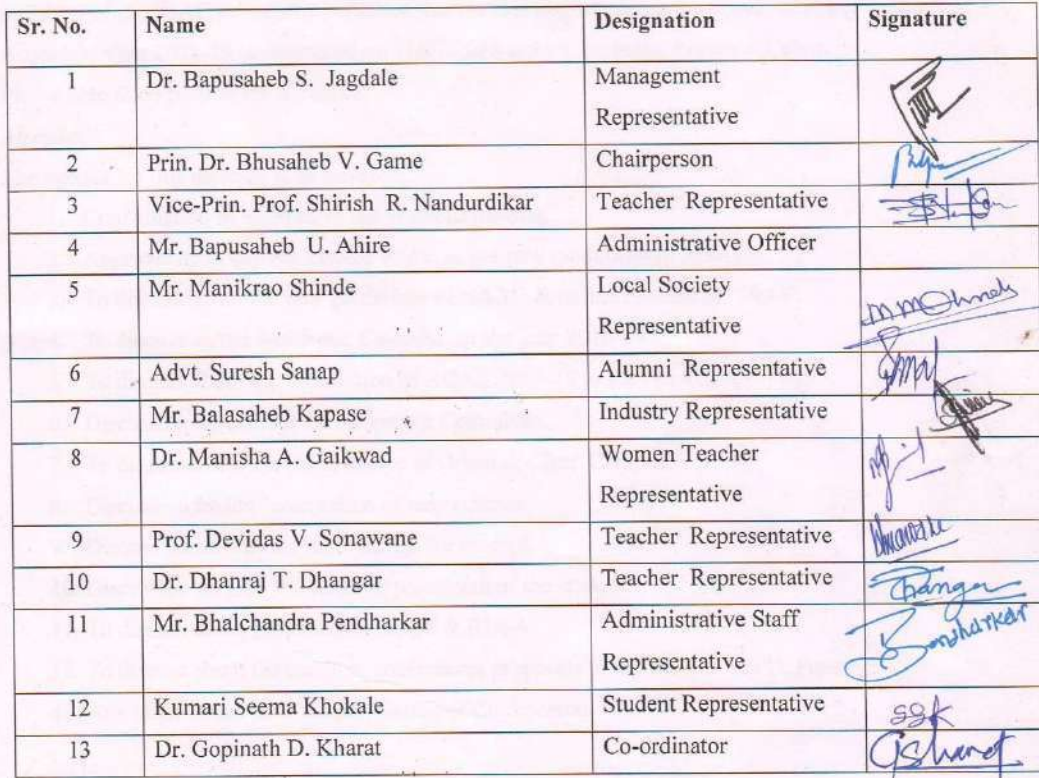 Sr. No. Name Designation Signature
1 Dr. Bapusaheb S. Jagdale Management
Representative
2 Prin. Dr. Bhusaheb V. Game Chairperson
3 Vice-Prin. Prof. Shirish R. Nandurdikar Teacher Representative
4 Mr. Bapusaheb U. Ahire Administrative Officer
5 Mr. Manikrao Shinde Local Society
Representative
6 Advt. Suresh Sanap Alumni Representative
7 Mr. Balasaheb Kapase Industry Representative
8 Dr. Manisha A. Gaikwad Women Teacher
Representative
9 Prof. Devidas V. Sonawane Teacher Representative
10 Dr. Dhanraj T. Dhangar Teacher Representative
11 Mr. Bhalchandra Pendharkar Administrative Staff
Representative
12 Kumari Seema Khokale Student Representative SSK
13 Dr. Gopinath D. Kharat Co-ordinator